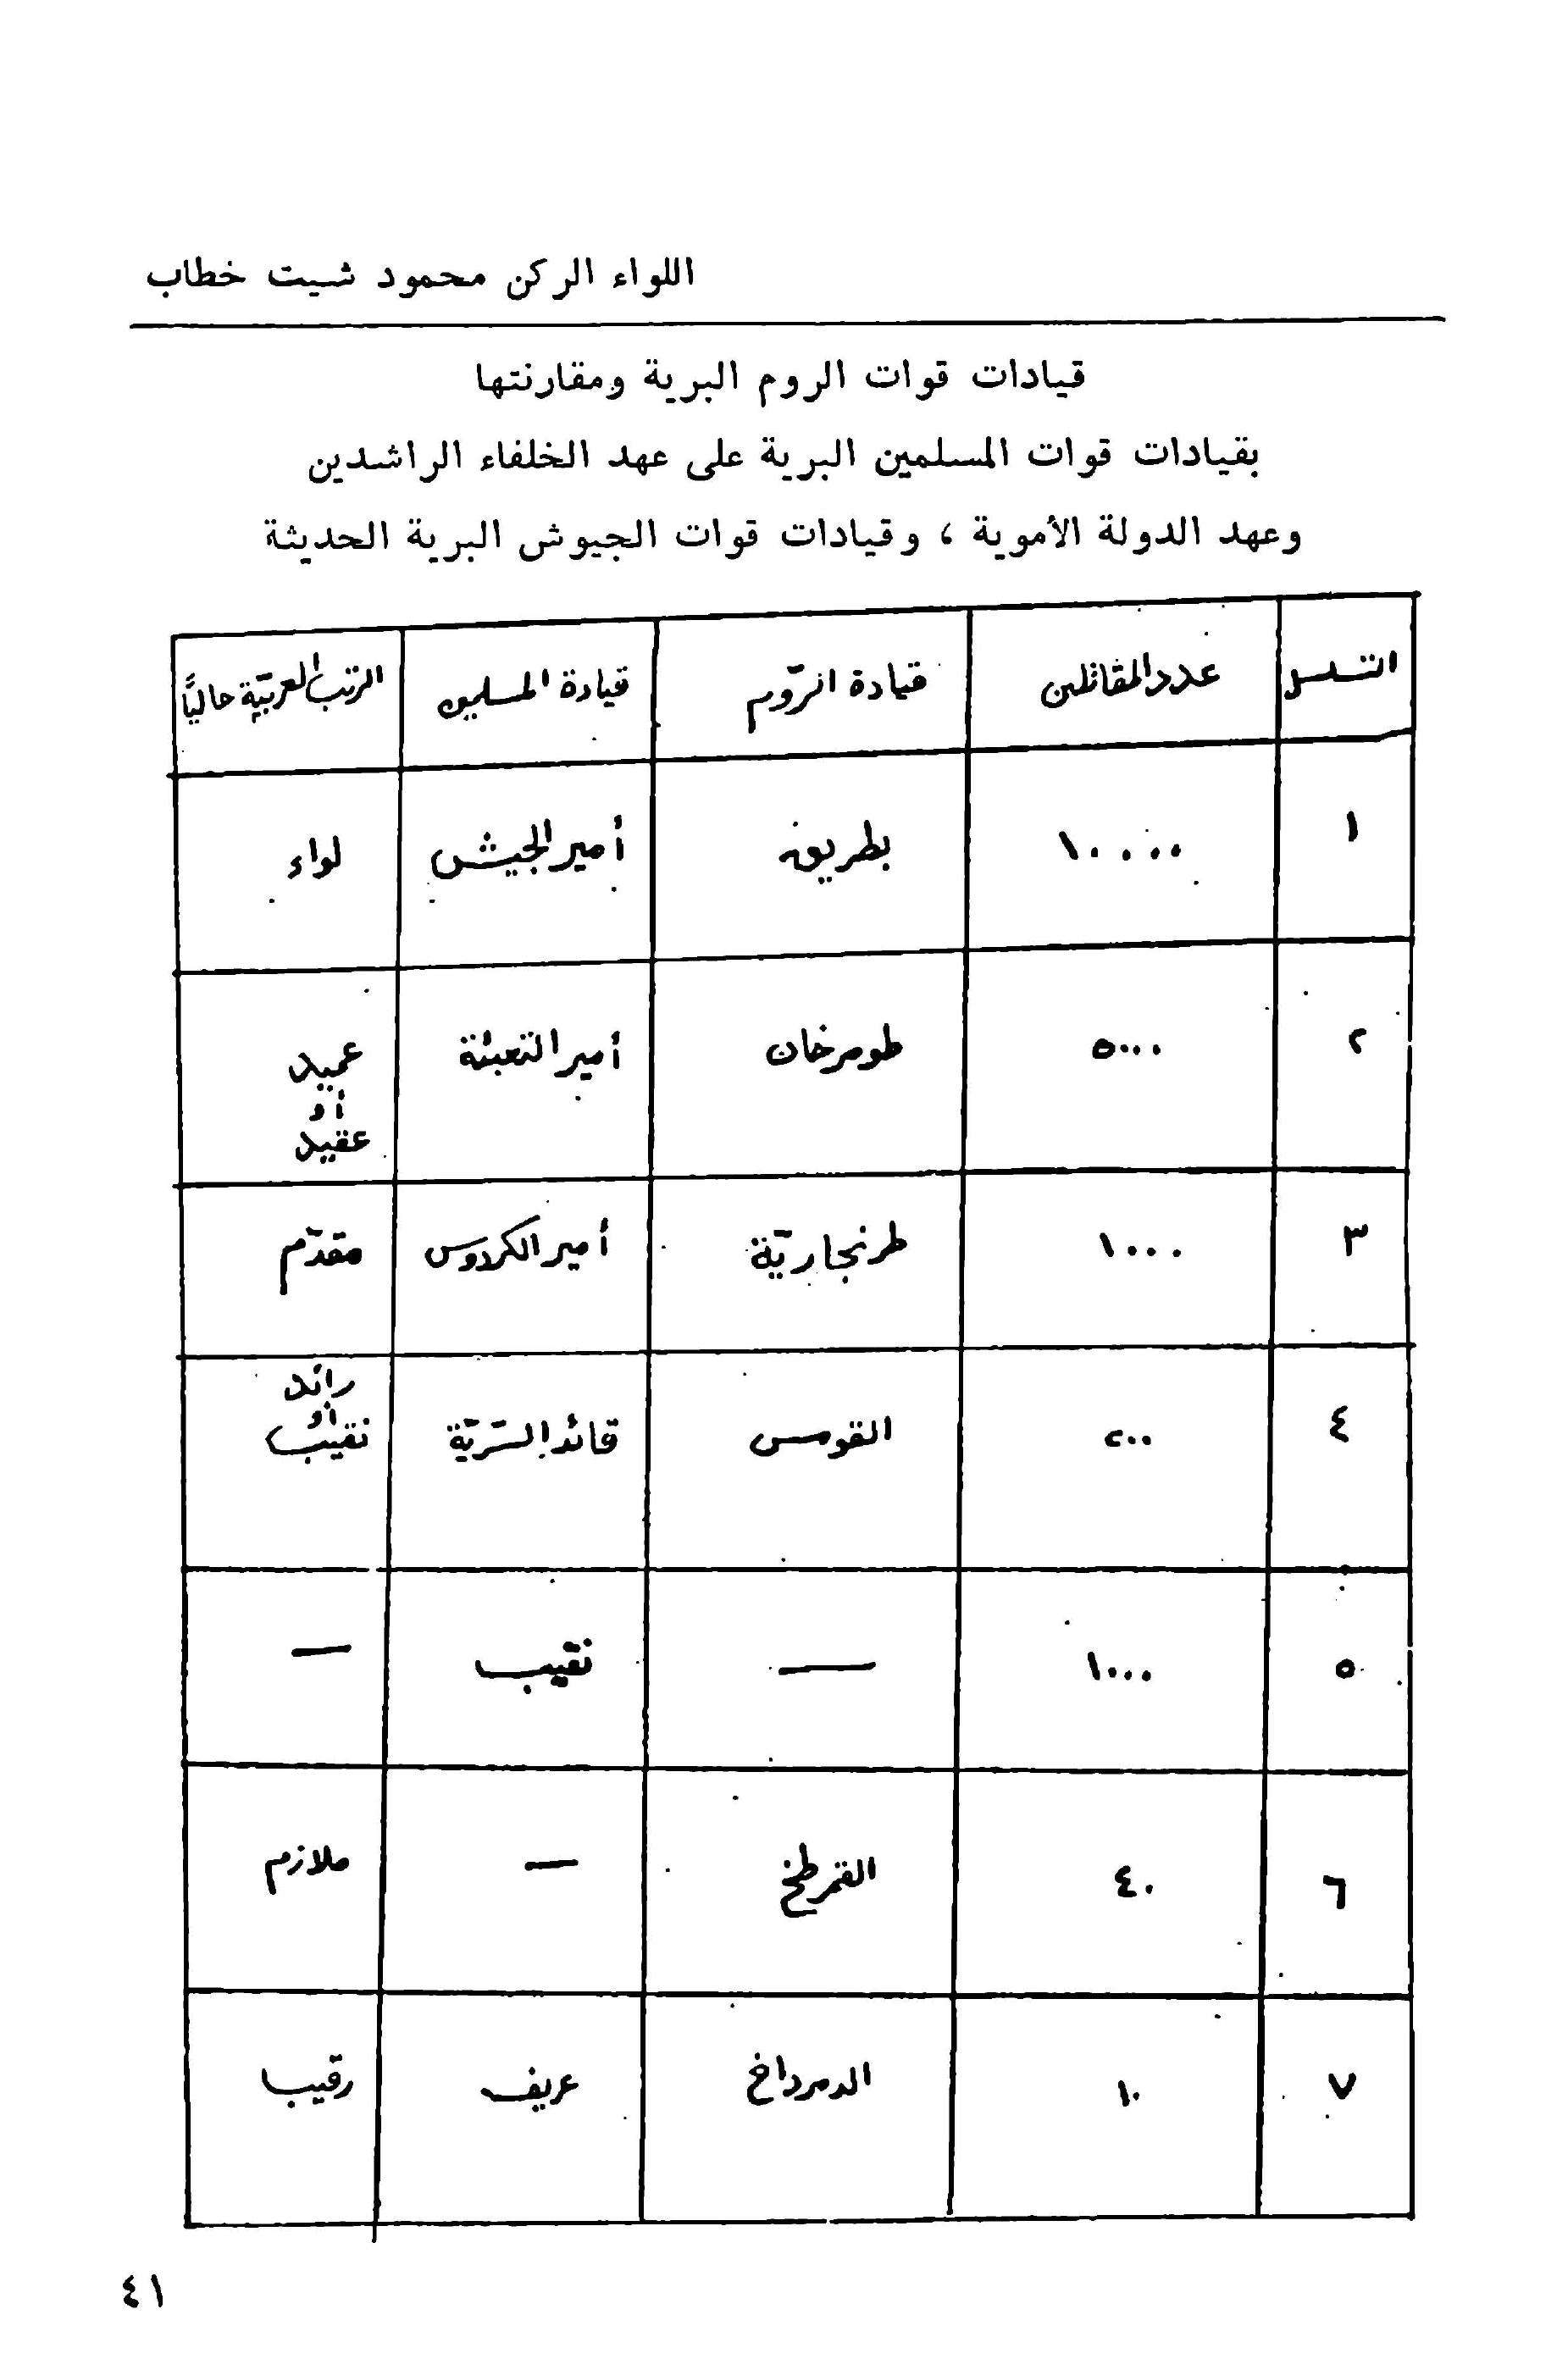 اللواء الركن محمود شيت خطاب
قيادات قوات الروم البرية ومقارنتها
بقيادات قوات المسلمين البرية على عهد الخلفاء الراشدين
وعهد الدولة الأموية ، وقيادات قوات الجيوش البرية الحديثة
التسلسل عدد المقاتلين قيادة الرّوم قيادة المسلمين الرتب العربيّة حاليًّا
١ ١٠٠٠٠ بطريق أمير الجيش لواء
٢ ٥٠٠٠ طومرخان أمير التعبئة عميد
أو
عقيد
٣ ١٠٠٠ طرنجاريّة أمير الكردوس مقدّم
٤ ٢٠٠ القومس قائد السّريّة رائد
أو
نقيب
٥ ١٠٠٠ — نقيب —
٦ ٤٠ القمرطخ — ملازم
٧ ١٠ الدمرداخ عريف رقيب
٤١